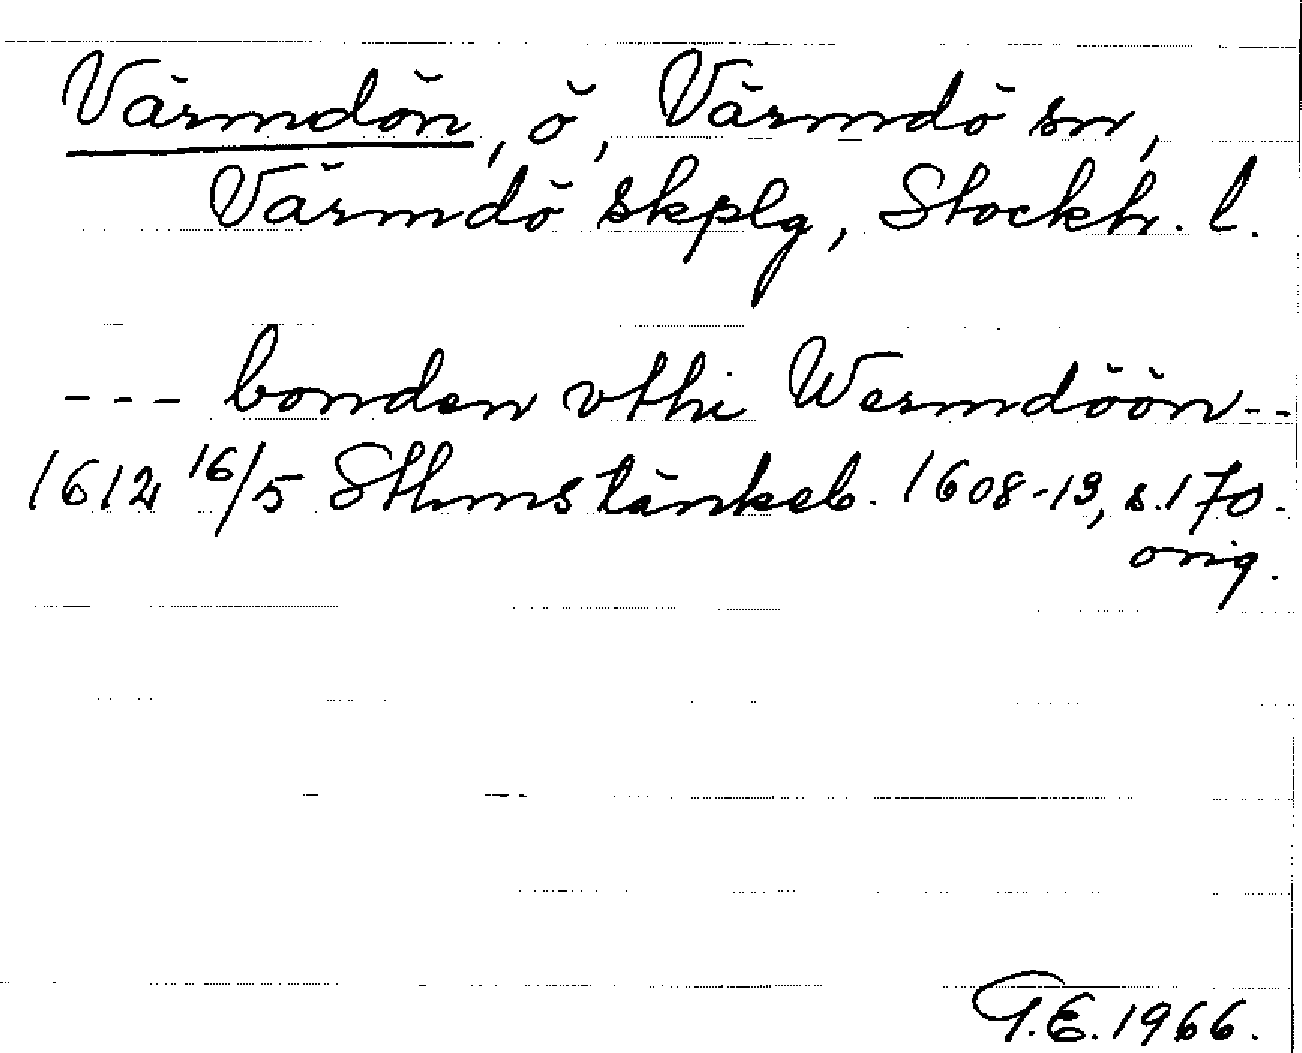 Värmdön, ö, Värmdö sn,
Värmdö skplg, Stockh. l.
--- bonden vthi Wermdöön--
1612 16/5 Sthms tänkeb. 1608-13, s. 170.
orig.
G.E. 1966.